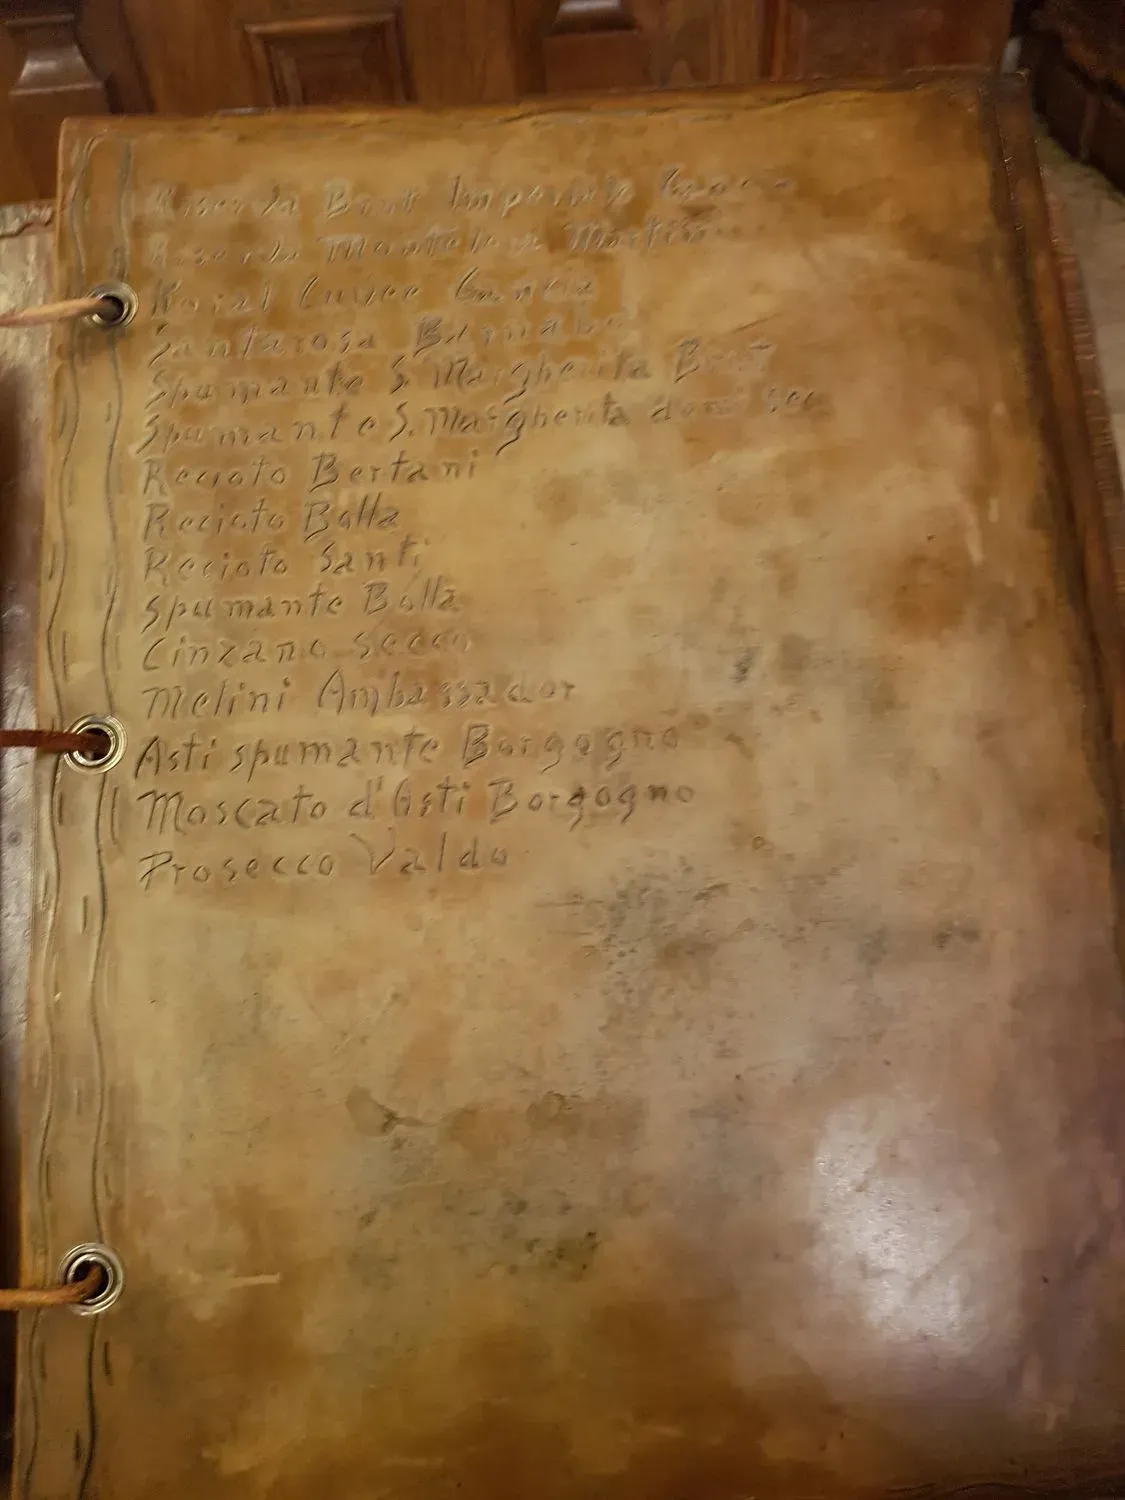 Riserva Brut Imperiale Gancia
Riserva Montelera Martini
Roial Cuvee Gancia
Santarosa Barnabo
Spumante S. Margherita Brut
Spumante S. Margherita demi sec
Recioto Bertani
Recioto Bolla
Recioto Santi
Spumante Bolla
Cinzano secco
Melini Ambassador
Asti spumante Borgogno
Moscato d'Asti Borgogno
Prosecco Valdo